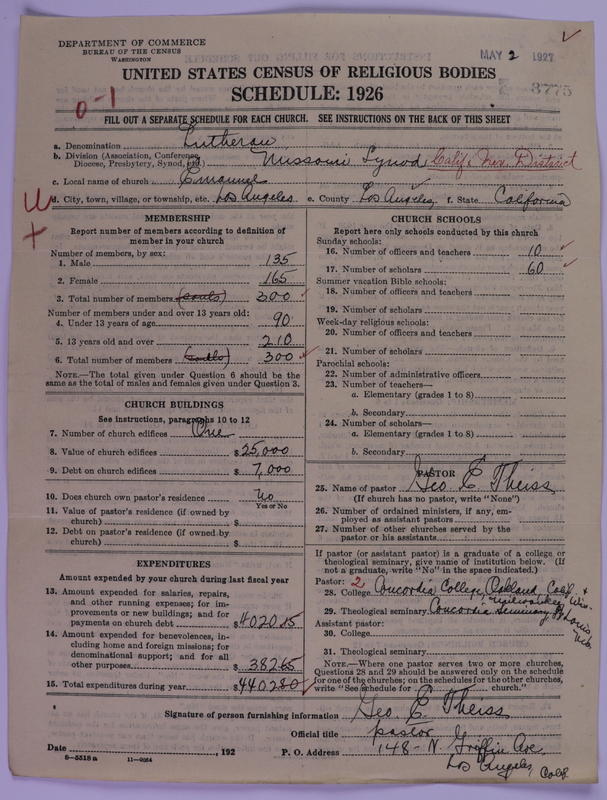 DEPARTMENT OF COMMERCE
BUREAU OF THE CENSUS
WASHINGTON
MAY 2 1927
UNITED STATES CENSUS OF RELIGIOUS BODIES
3775
SCHEDULE: 1926
0-1
FILL OUT A SEPARATE SCHEDULE FOR EACH CHURCH. SEE INSTRUCTIONS ON THE BACK OF THIS SHEET
a. Denomination Lutheran
b. Division (Association, Conference, Diocese, Presbytery, Synod, etc.) Missouri Synod Calif & Nev. District
c. Local name of church Emanuel
d. City, town, village, or township, etc. Los Angeles e. County Los Angeles f. State California
MEMBERSHIP
Report number of members according to definition of
member in your church
Number of members, by sex:
1. Male 135
2. Female 165
3. Total number of members (souls) 300
Number of members under and over 13 years old:
4. Under 13 years of age 90
5. 13 years old and over 210
6. Total number of members (souls) 300
NOTE.—The total given under Question 6 should be
same as the total of males and females given under Question 3.
CHURCH BUILDINGS
See instructions, paragraphs 10 to 12
7. Number of church edifices One
8. Value of church edifices $25,000
9. Debt on church edifices $ 7,000
10. Does church own pastor's residence No
Yes or No
11. Value of pastor's residence (if owned by
church) $
12. Debt on pastor's residence (if owned by
church) $
EXPENDITURES
Amount expended by your church during last fiscal year
13. Amount expended for salaries, repairs,
and other running expenses; for im-
provements or new buildings; and for
payments on church debt $4020 15
14. Amount expended for benevolences, in-
cluding home and foreign missions; for
denominational support; and for all
other purposes $ 382 65
15. Total expenditures during year $4402 80
CHURCH SCHOOLS
Report here only schools conducted by this church
Sunday schools:
16. Number of officers and teachers 10
17. Number of scholars 60
Summer vacation Bible schools:
18. Number of officers and teachers
19. Number of scholars
Week-day religious schools:
20. Number of officers and teachers
21. Number of scholars
Parochial schools:
22. Number of administrative officers
23. Number of teachers—
a. Elementary (grades 1 to 8)
b. Secondary
24. Number of scholars—
a. Elementary (grades 1 to 8)
b. Secondary
PASTOR
25. Name of pastor Geo E Theiss
(If church has no pastor, write "None")
26. Number of ordained ministers, if any, em-
ployed as assistant pastors
27. Number of other churches served by the
pastor or his assistants
If pastor (or assistant pastor) is a graduate of a college or
theological seminary, give name of institution below. (If
not a graduate, write "No" in the space indicated.)
Pastor: 2
28. College Concordia College, Oakland, Calif. +
Milwaukee, Wis.
29. Theological seminary Concordia Seminary St Louis, Mo.
Assistant pastor:
30. College
31. Theological seminary
NOTE.—Where one pastor serves two or more churches,
Questions 28 and 29 should be answered only on the schedule
for one of the churches; on the schedules for the other churches,
write "See schedule for church."
Signature of person furnishing information Geo. E. Theiss
Official title pastor
Date , 192 P. O. Address 148 - N. Griffin Ave.
Los Angeles, Calif
8—5518 a 11—9064